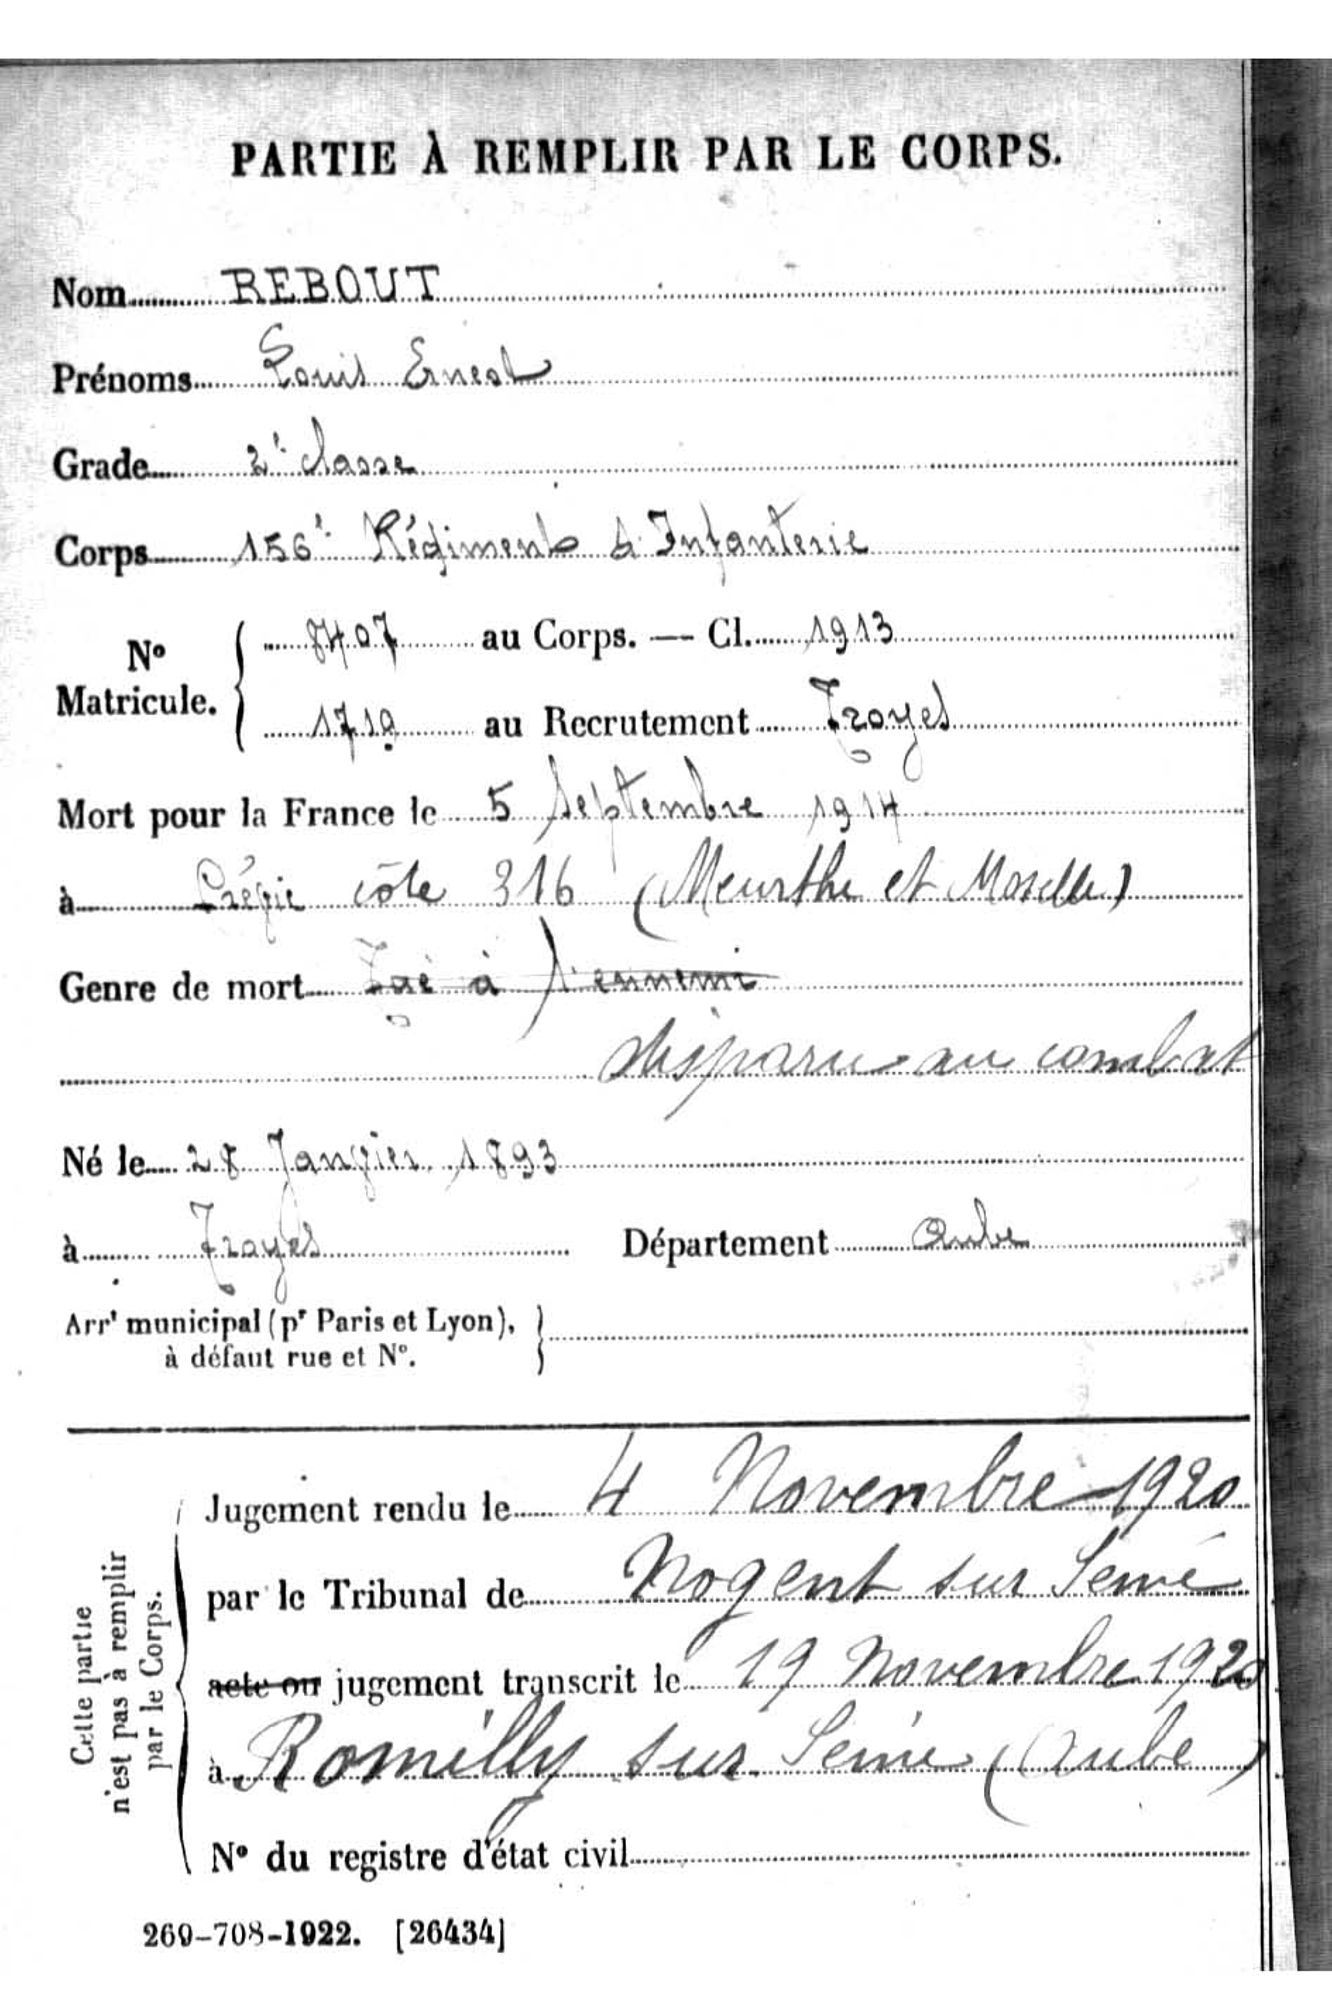 PARTIE À REMPLIR PAR LE CORPS.
Nom REBOUT
Prénoms Louis Ernest
Grade 2e classe
Corps 156e Régiment d'Infanterie
No Matricule. { 8407 au Corps. — Cl. 1913
1719 au Recrutement Troyes
Mort pour la France le 5 Septembre 1914
à côte 316 (Meurthe et Moselle)
Genre de mort Tué à l'ennemi
disparu au combat
Né le 28 Janvier 1893
à Troyes Département Aube
Arrt municipal (pr Paris et Lyon), }
à défaut rue et No.
Cette partie
n'est pas à remplir
par le Corps.
Jugement rendu le 4 Novembre 1920
par le Tribunal de Nogent sur Seine
acte ou jugement transcrit le 19 Novembre 1920
à Romilly sur Seine (Aube)
No du registre d'état civil
269-708-1922. [26434]